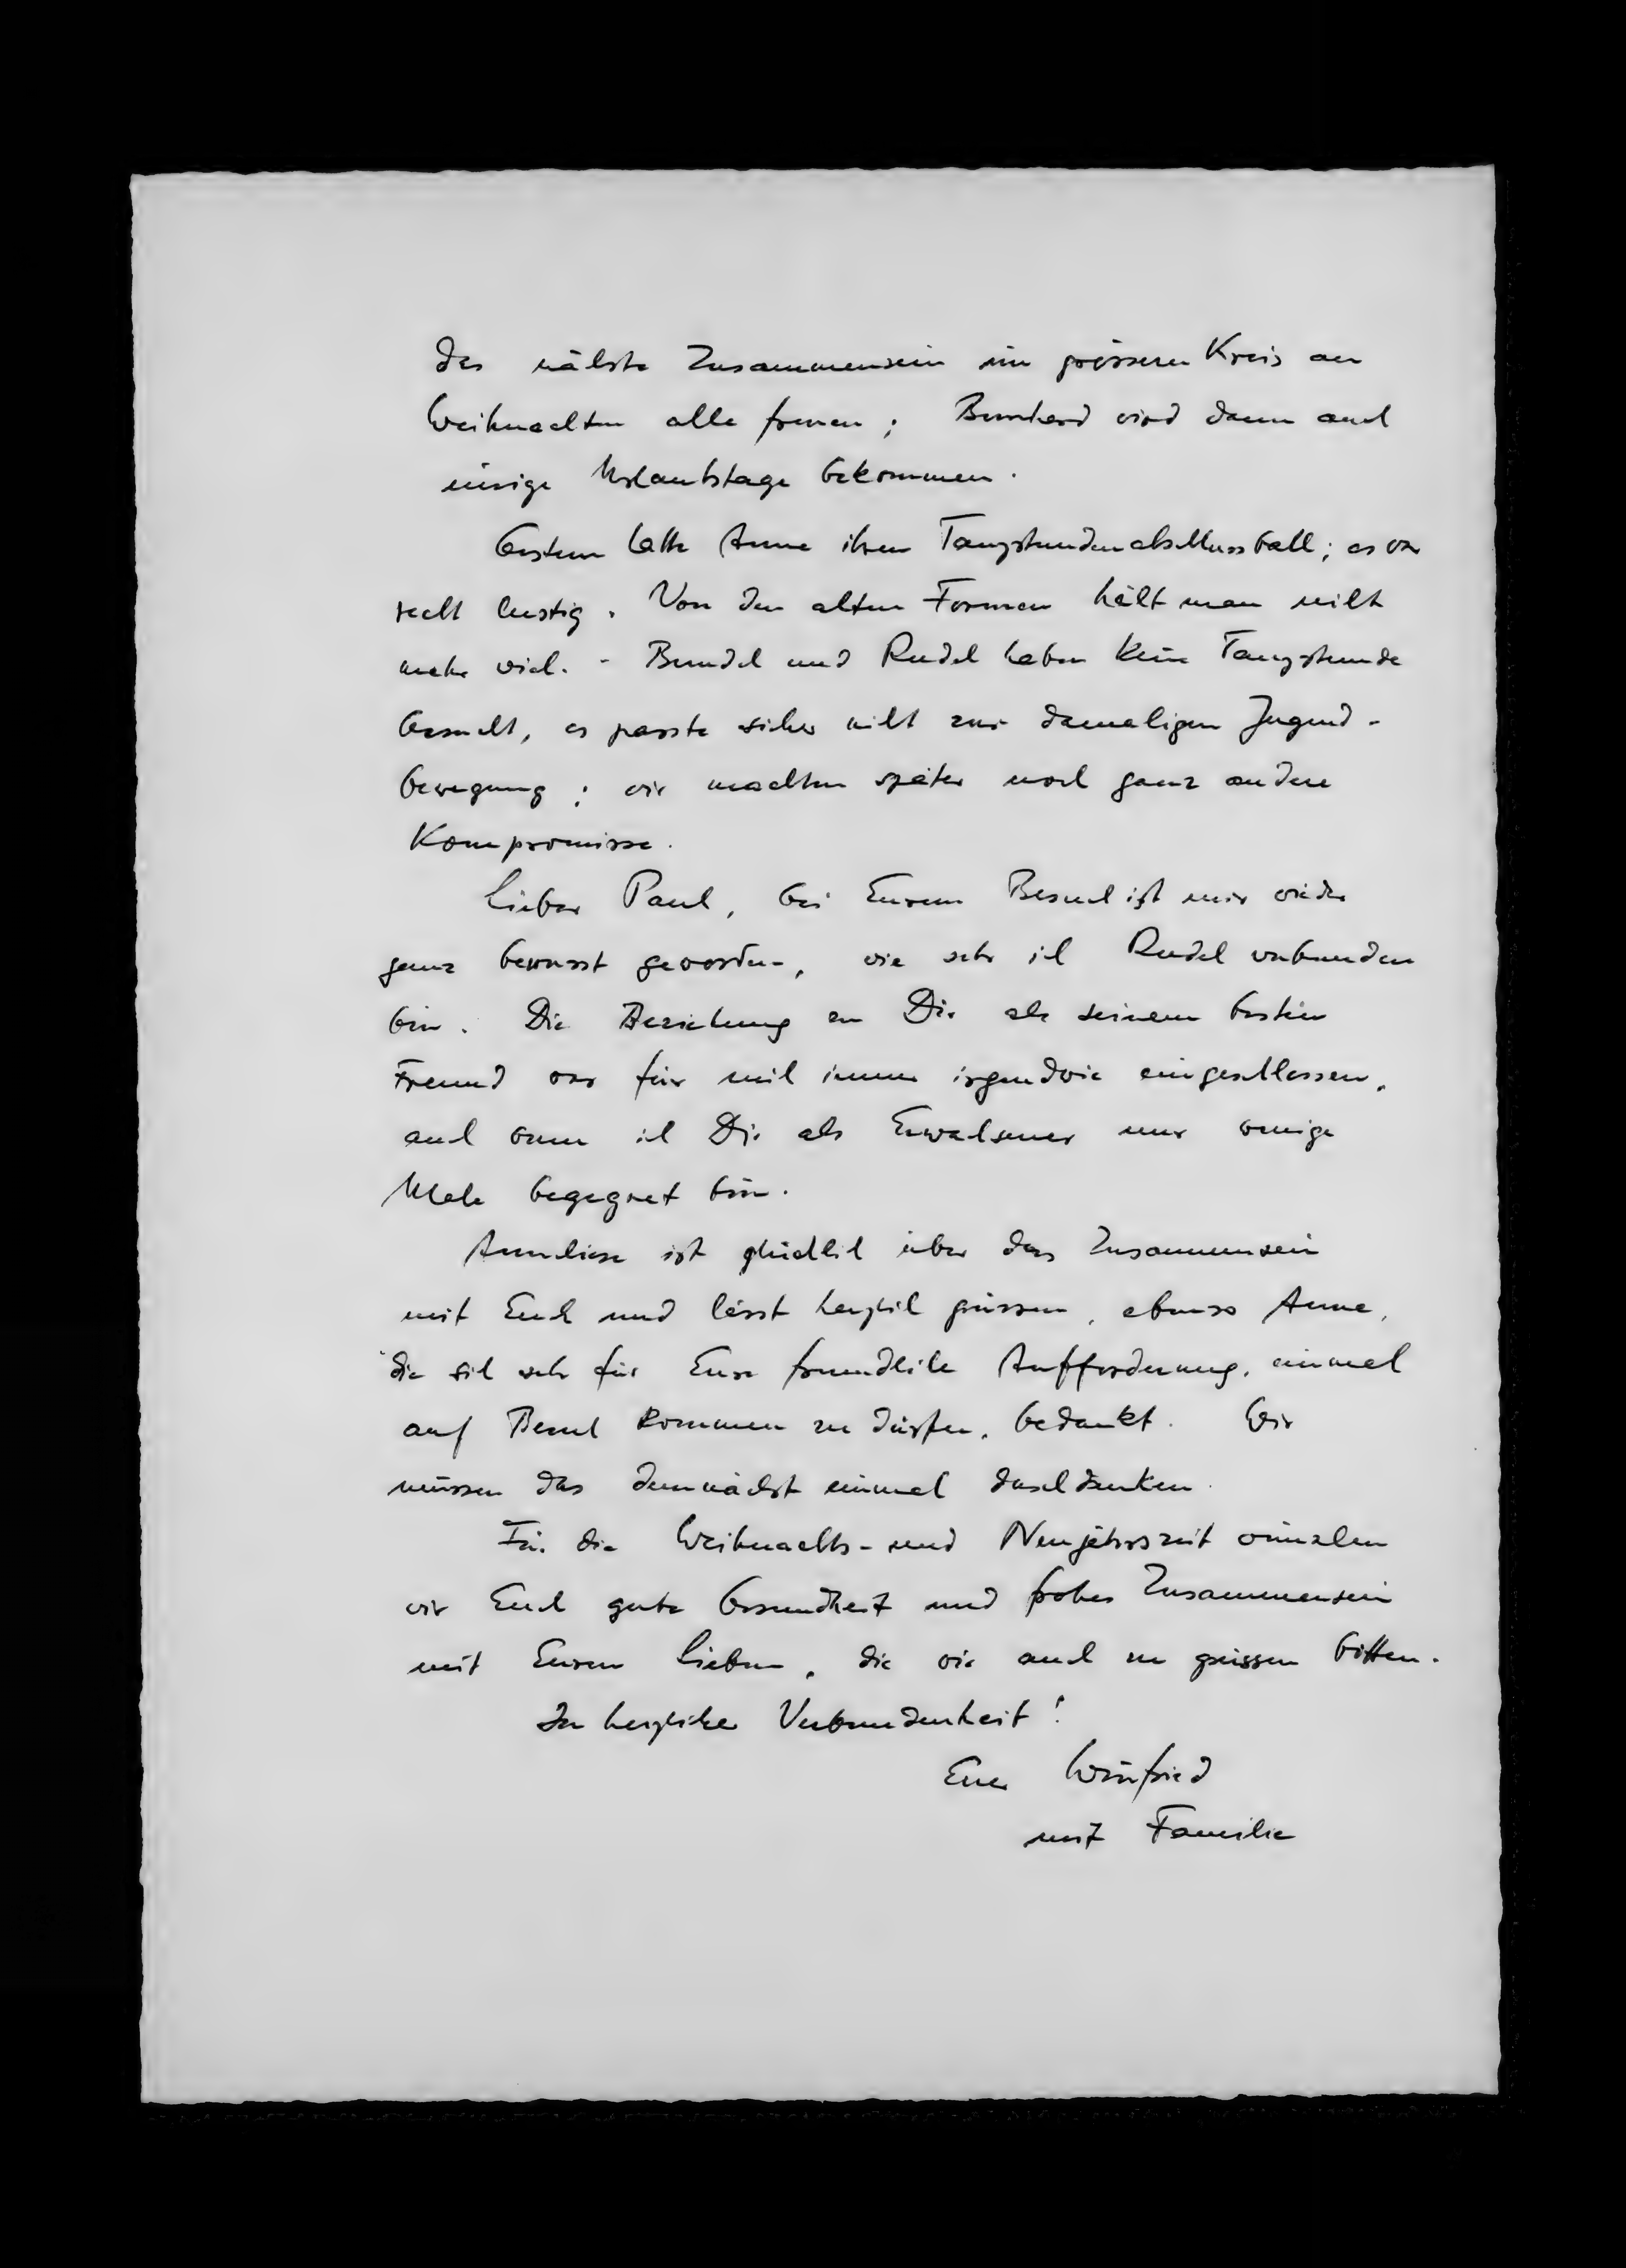 das nächste Zusammensein im grösseren Kreis an
Weihnachten alle freuen; Bernhard wird dann auch
einige Urlaubstage bekommen.
Gestern hatte Anne ihren Tanzstundenabschlussball; es war
recht lustig. Von den alten Formen hält man nicht
mehr viel. - Berndel und Rudel haben keine Tanzstunde
besucht, es passte sicher nicht zur damaligen Jugend-
bewegung; wir machten später noch ganz andere
Kompromisse.
Lieber Paul, bei Eurem Besuch ist mir wieder
ganz bewusst geworden, wie sehr ich Rudel verbunden
bin. Die Beziehung zu Dir als seinem besten
Freund war für mich immer irgendwie eingeschlossen,
auch wenn ich Dir als Erwachsener nur wenige
Male begegnet bin.
Anneliese ist glücklich über das Zusammensein
mit Euch und lässt herzlich grüssen, ebenso Anne,
die sich sehr für Eure freundliche Aufforderung, einmal
auf Besuch kommen zu dürfen, bedankt. Wir
müssen das demnächst einmal durchdenken.
Für die Weihnachts- und Neujahrszeit wünschen
wir Euch gute Gesundheit und frohes Zusammensein
mit Euren Lieben, die wir auch zu grüssen bitten.
In herzlicher Verbundenheit!
Euer Winfried
mit Familie